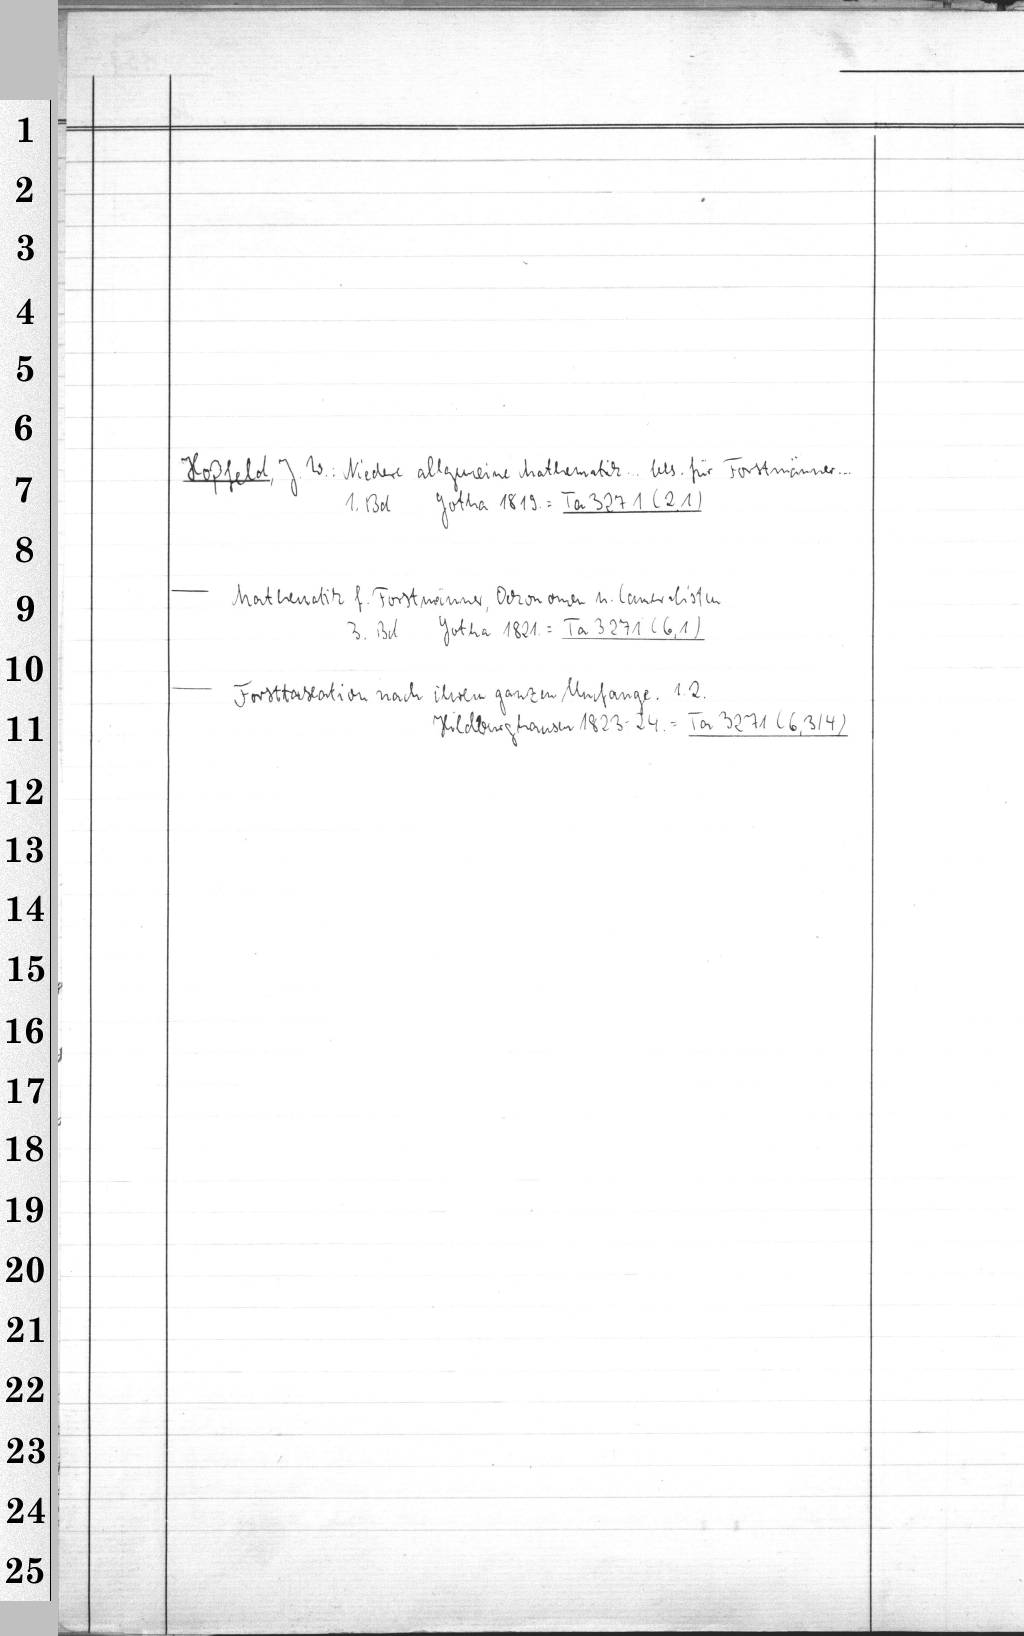 1
2
3
4
5
6
7
8
9
10
11
12
13
14
15
16
17
18
19
20
21
22
23
24
25
Hoßfeld, J. W.: Niedere allgemeine Mathematik... bes. für Forstmänner...
1. Bd Gotha 1819. = Ta 3271 (2,1)
— Mathematik f. Forstmänner, Oekonomen u. Cameralisten
3. Bd Gotha 1821. = Ta 3271 (6,1)
— Forsttaxation nach ihrem ganzen Umfange. 1.2.
Hildburghausen 1823-24. = Ta 3271 (6,3/4)